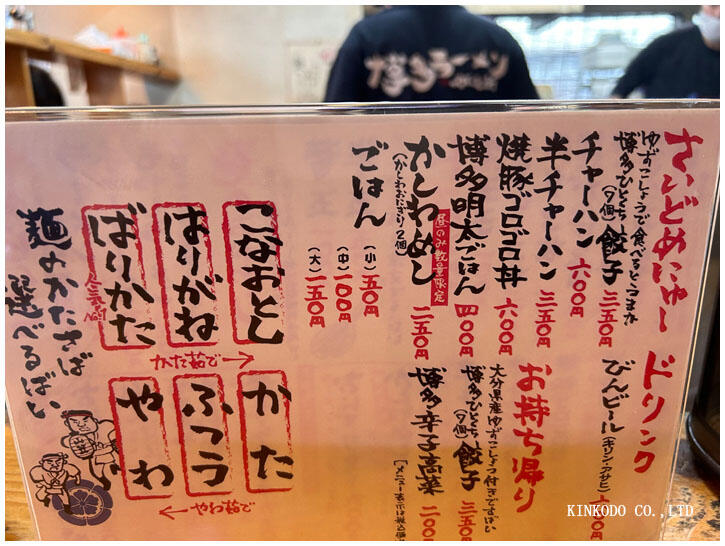 博多ラーメン
さいどめにゅー
ゆずこしょうで食べるとうまか
博多ひとくち餃子
(9個)
三五0円
チャーハン
六00円
半チャーハン
三五0円
焼豚ゴロゴロ丼
六00円
博多明太ごはん
四00円
かしわめし
昼のみ数量限定
(かしわおにぎり2個)
二五0円
ごはん
(小)五0円
(中)一00円
(大)一五0円
ドリンク
びんビール(キリン・アサヒ)
お持ち帰り
大分県産ゆずこしょう付きですばい
博多ひとくち餃子
(9個)
三五0円
博多辛子高菜
二00円
こなおとし
はりがね
ばりかた
かた茹で→
かた
ふつう
やわ
←やわ茹で
麺のかたさば
選べるばい
KINKODO CO.,LTD